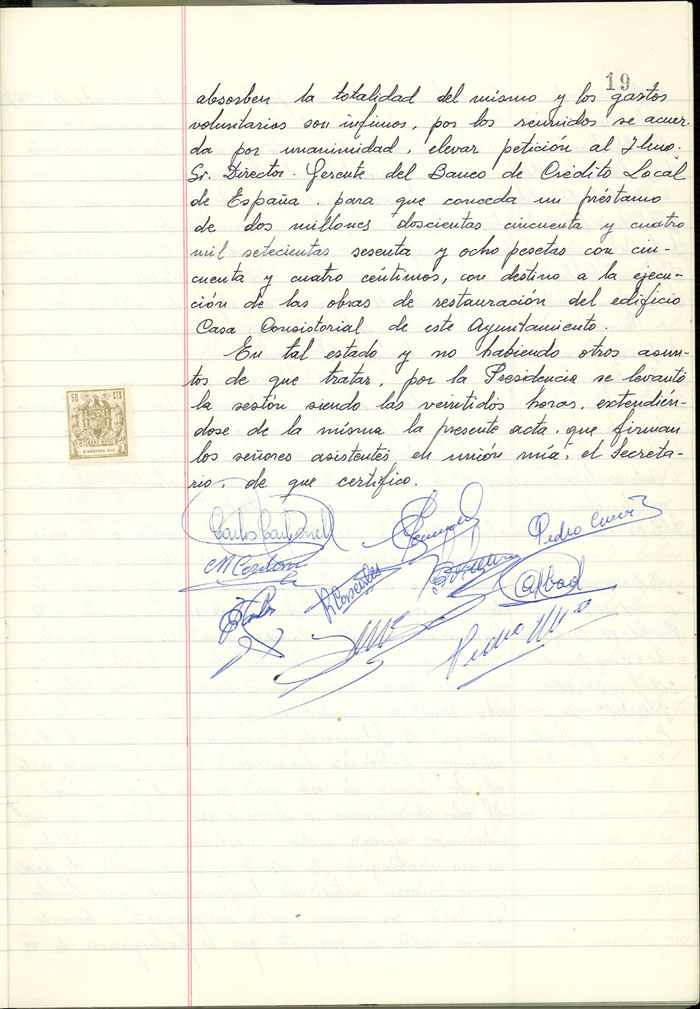 19
absorben la totalidad del mismo y los gastos
voluntarios son ínfimos, por los reunidos se acuer-
da por unanimidad, elevar petición al Ilmo.
Sr. Director-Gerente del Banco de Crédito Local
de España, para que conceda un préstamo
de dos millones doscientas cincuenta y cuatro
mil setecientas sesenta y ocho pesetas con cin-
cuenta y cuatro céntimos, con destino a la ejecu-
ción de las obras de restauración del edificio
Casa Consistorial de este Ayuntamiento.
En tal estado y no habiendo otros asun-
tos de que tratar, por la Presidencia se levantó
la sesión siendo las veintidos horas, extendién-
dose de la misma la presente acta, que firman
los señores asistentes en unión mía, el Secreta-
rio, de que certifico.
50 CTS
Carlos Carbonell
Pedro
Abad
Pedro